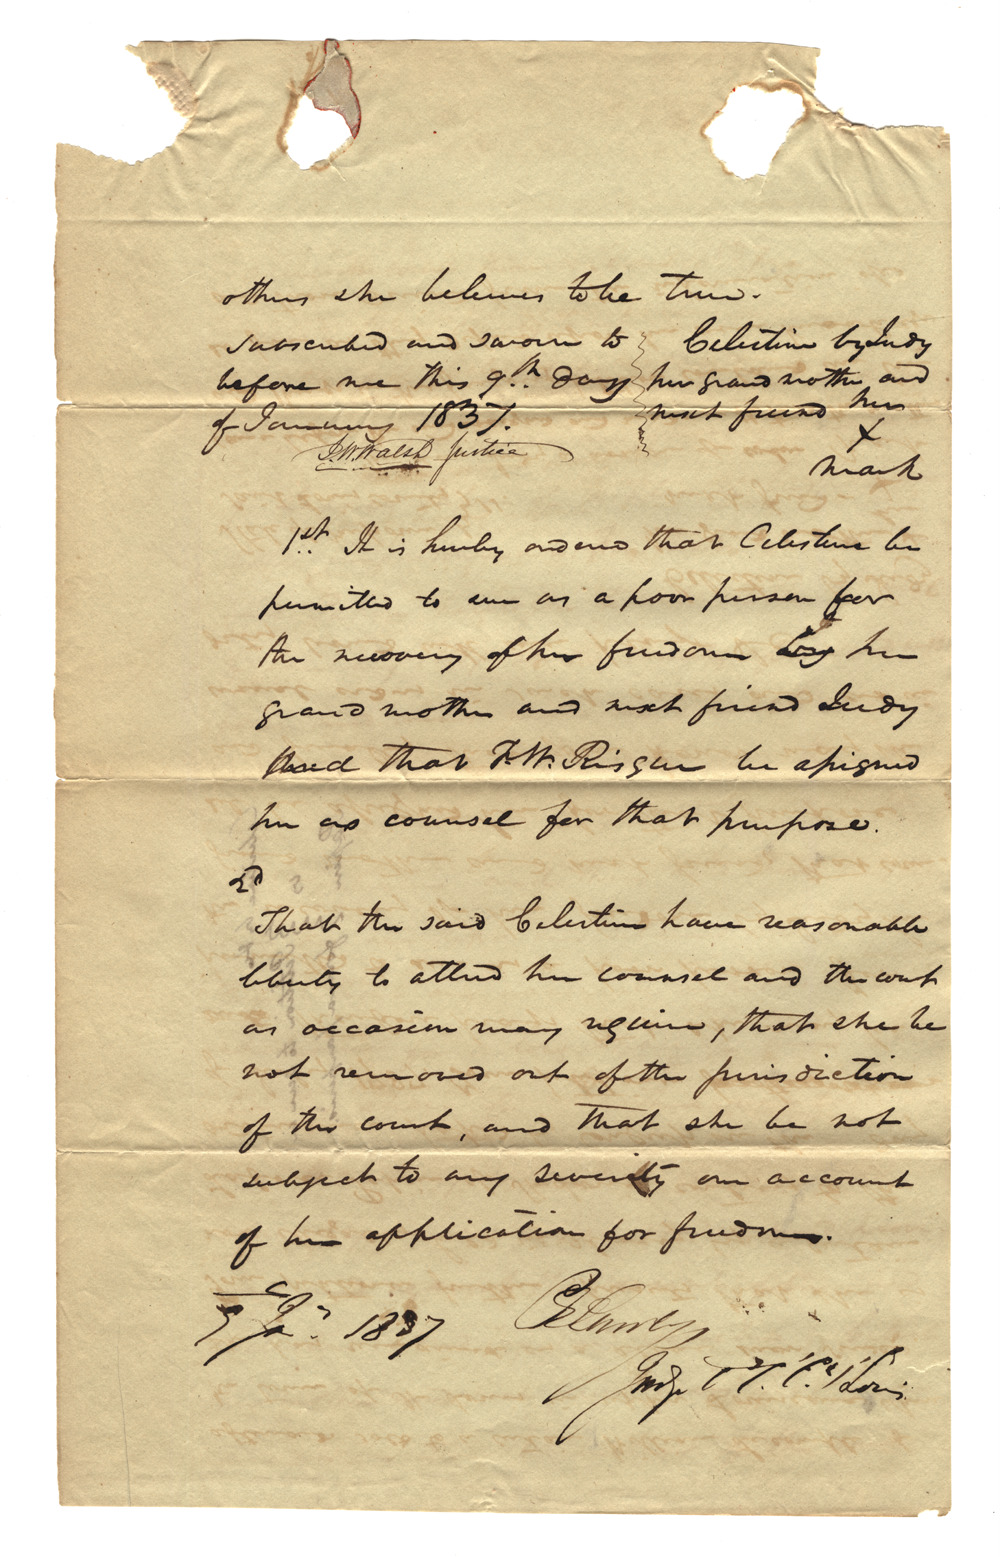 others she believes to be true.
subscribed and sworn to
before me this 9th day
of January 1837.
J.W. Walsh Justice
Celestine by Judy
her grandmother and
next friend her
X
mark
1st. It is hereby ordered that Celestine be
permitted to sue as a poor person for
the recovery of her freedom by her
grand mother and next friend Judy
and that F. W. Risque be assigned
her as counsel for that purpose.
2d
That the said Celestine have reasonable
liberty to attend her counsel and the court
as occasion may require, that she be
not removed out of the jurisdiction
of the court, and that she be not
subject to any severity on account
of her application for freedom.
9 Jan. 1837
Judge
Louis